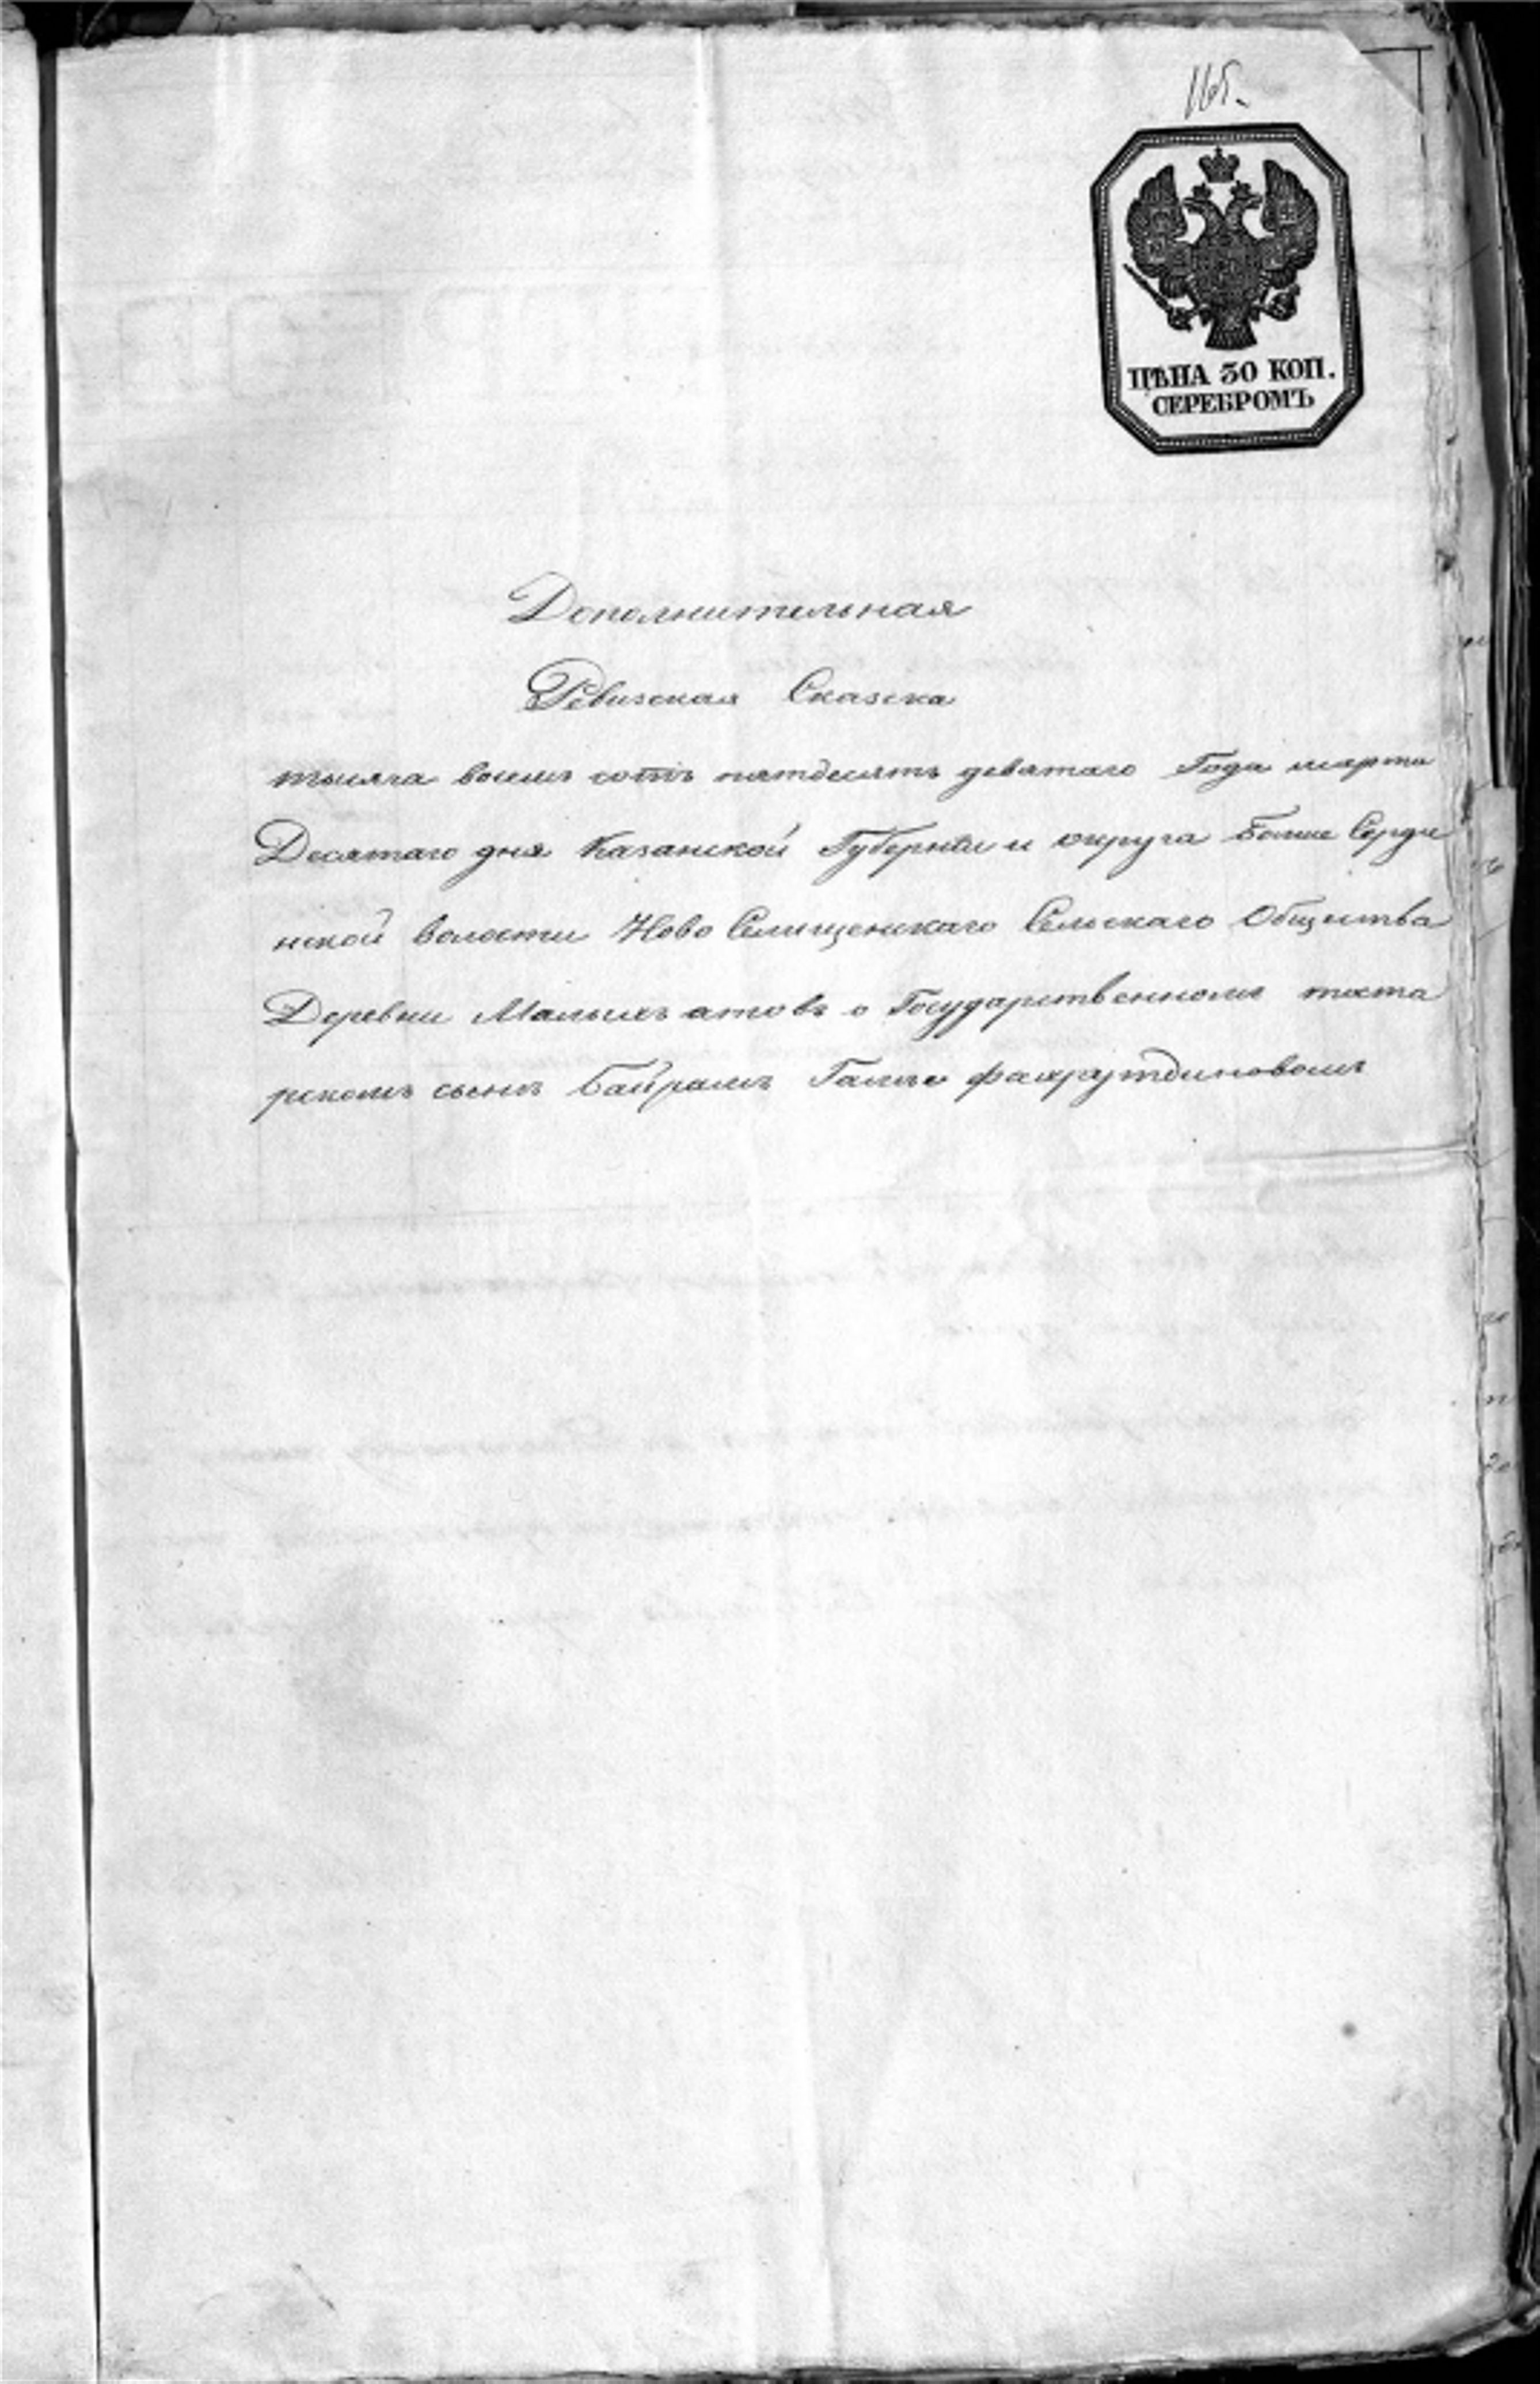 165.
ЦѢНА 30 КОП.
СЕРЕБРОМЪ
Дополнительная
Ревизская Сказка
тысяча восемь сотъ пятдесятъ девятаго Года марта
Десятаго дня Казанской Губерніи и округа Больше Серди
нской волости Ново Селищенскаго Сельскаго Общества
Деревни Малыхъ атовъ о Государственномъ тата
рскомъ сынѣ Байрамъ Галѣе фахрутдиновомъ